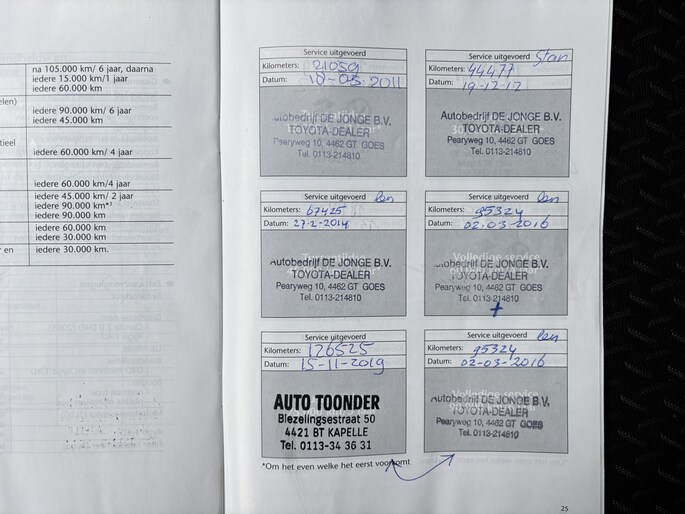 na 105.000 km/ 6 jaar, daarna
iedere 15.000 km/1 jaar
iedere 60.000 km
iedere 90.000 km/ 6 jaar
iedere 45.000 km
iedere 60.000 km/ 4 jaar
iedere 60.000 km/4 jaar
iedere 45.000 km/ 2 jaar
iedere 90.000 km*³
iedere 90.000 km
iedere 60.000 km
iedere 30.000 km
en iedere 30.000 km.
Service uitgevoerd
Kilometers: 21059
Datum: 10-03-2011
Autobedrijf DE JONGE B.V.
TOYOTA-DEALER
Pearyweg 10, 4462 GT GOES
Tel. 0113-214810
Service uitgevoerd Stan
Kilometers: 44477
Datum: 19-12-12
Autobedrijf DE JONGE B.V.
TOYOTA-DEALER
Pearyweg 10, 4462 GT GOES
Tel. 0113-214810
Service uitgevoerd len
Kilometers: 67425
Datum: 27-2-2014
Autobedrijf DE JONGE B.V.
TOYOTA-DEALER
Pearyweg 10, 4462 GT GOES
Tel. 0113-214810
Service uitgevoerd len
Kilometers: 95324
Datum: 02-03-2016
Volledige service
Autobedrijf DE JONGE B.V.
TOYOTA-DEALER
Pearyweg 10, 4462 GT GOES
Tel. 0113-214810
Service uitgevoerd
Kilometers: 126525
Datum: 15-11-2019
AUTO TOONDER
Biezelingsestraat 50
4421 BT KAPELLE
Tel. 0113-34 36 31
Service uitgevoerd len
Kilometers: 95324
Datum: 02-03-2016
Autobedrijf DE JONGE B.V.
TOYOTA-DEALER
Pearyweg 10, 4462 GT GOES
Tel. 0113-214810
*Om het even welke het eerst voorkomt
25